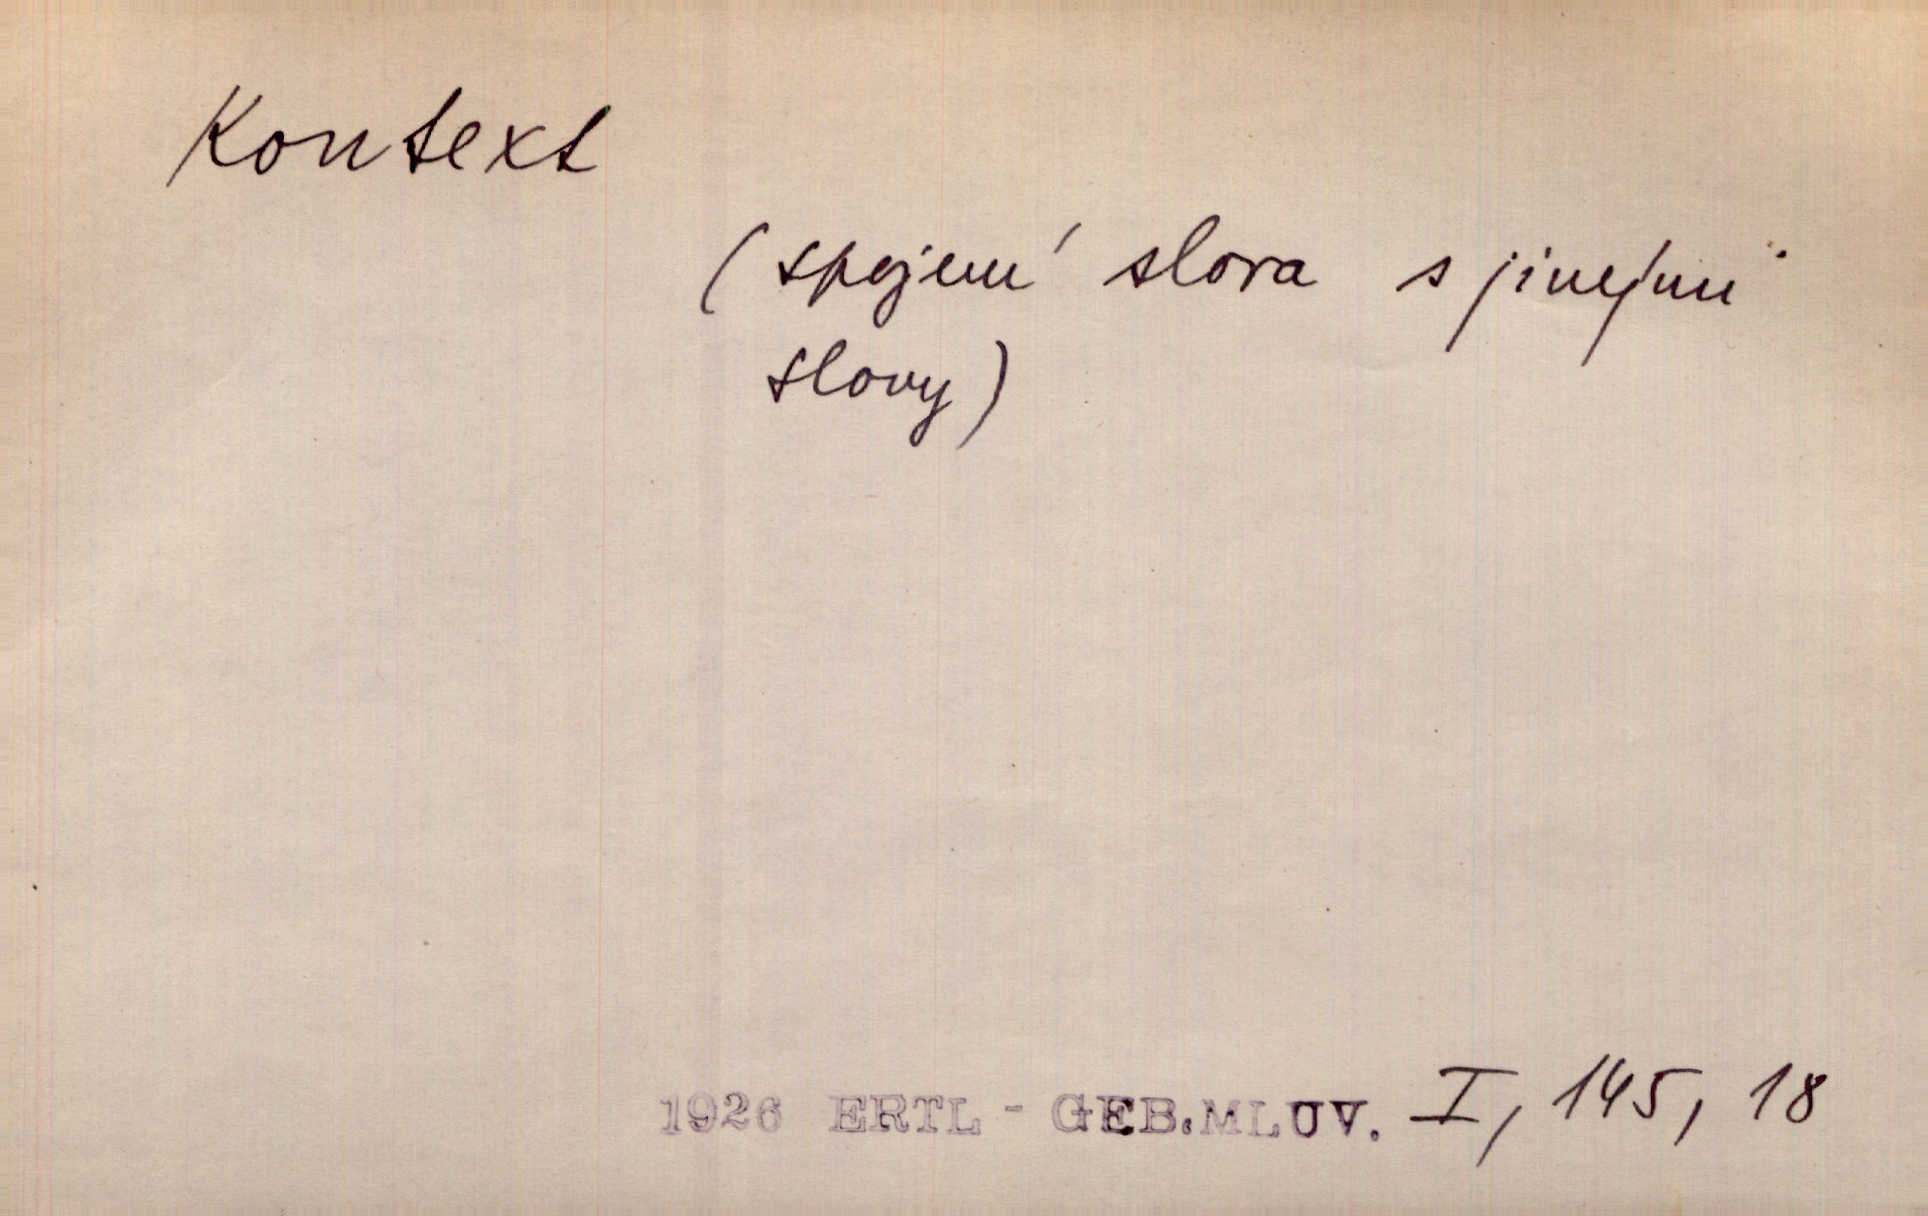 Kontext
(spojení slova s jinými
slovy)
1926 ERTL - GEB.MLUV. I, 145, 18